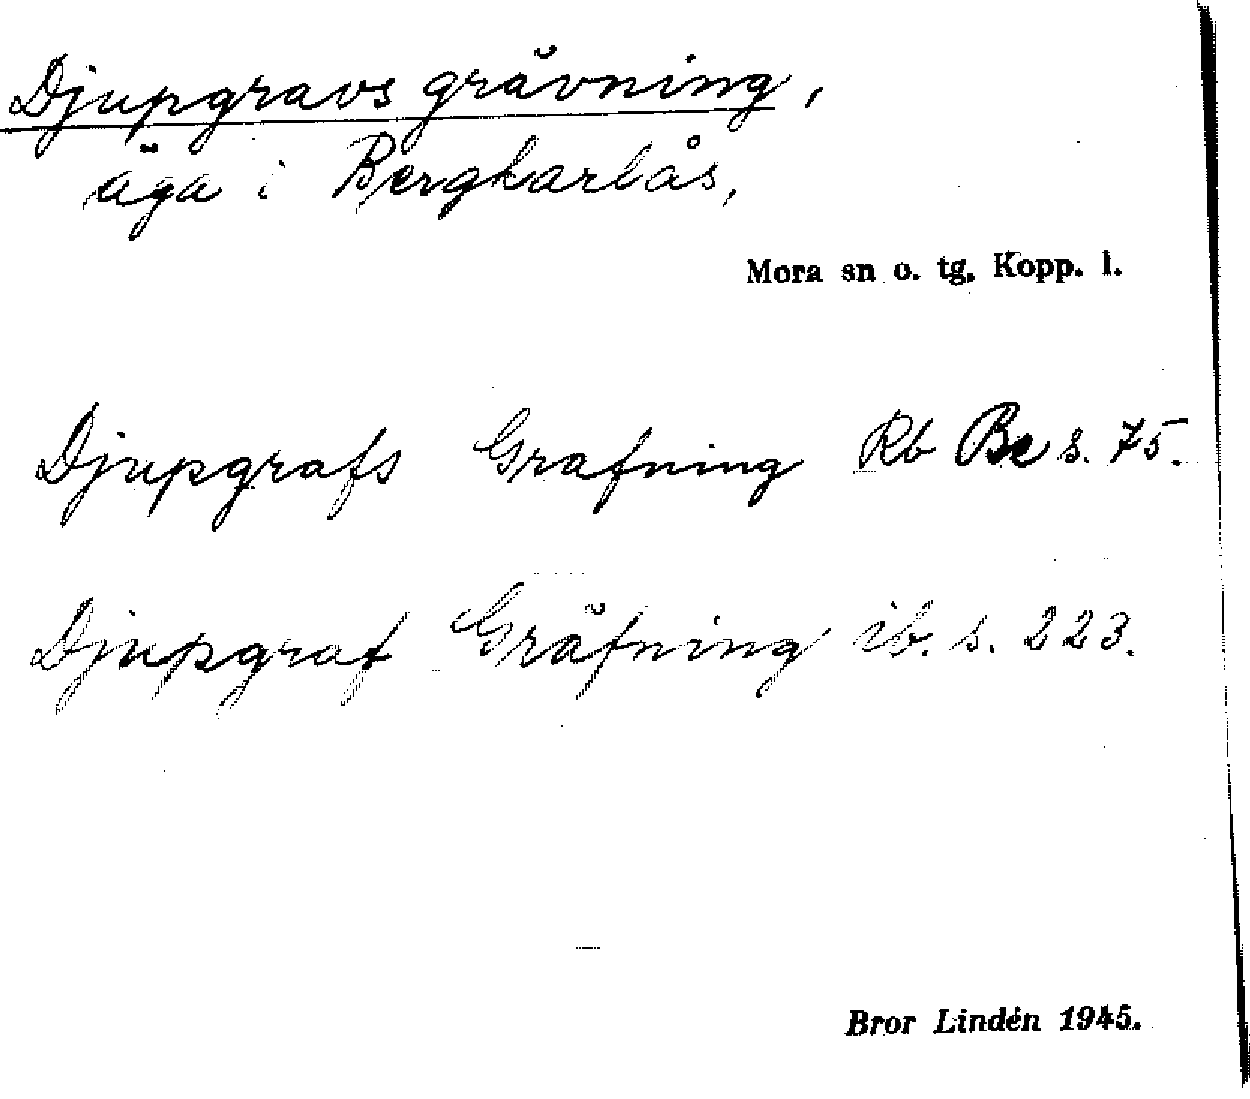 Djupgravs grävning,
äga i Bergkarlås,
Mora sn o. tg. Kopp. l.
Djupgrafs Grafning Rb Be s. 75.
Djupgraf Gräfning ib. s. 223.
Bror Lindén 1945.